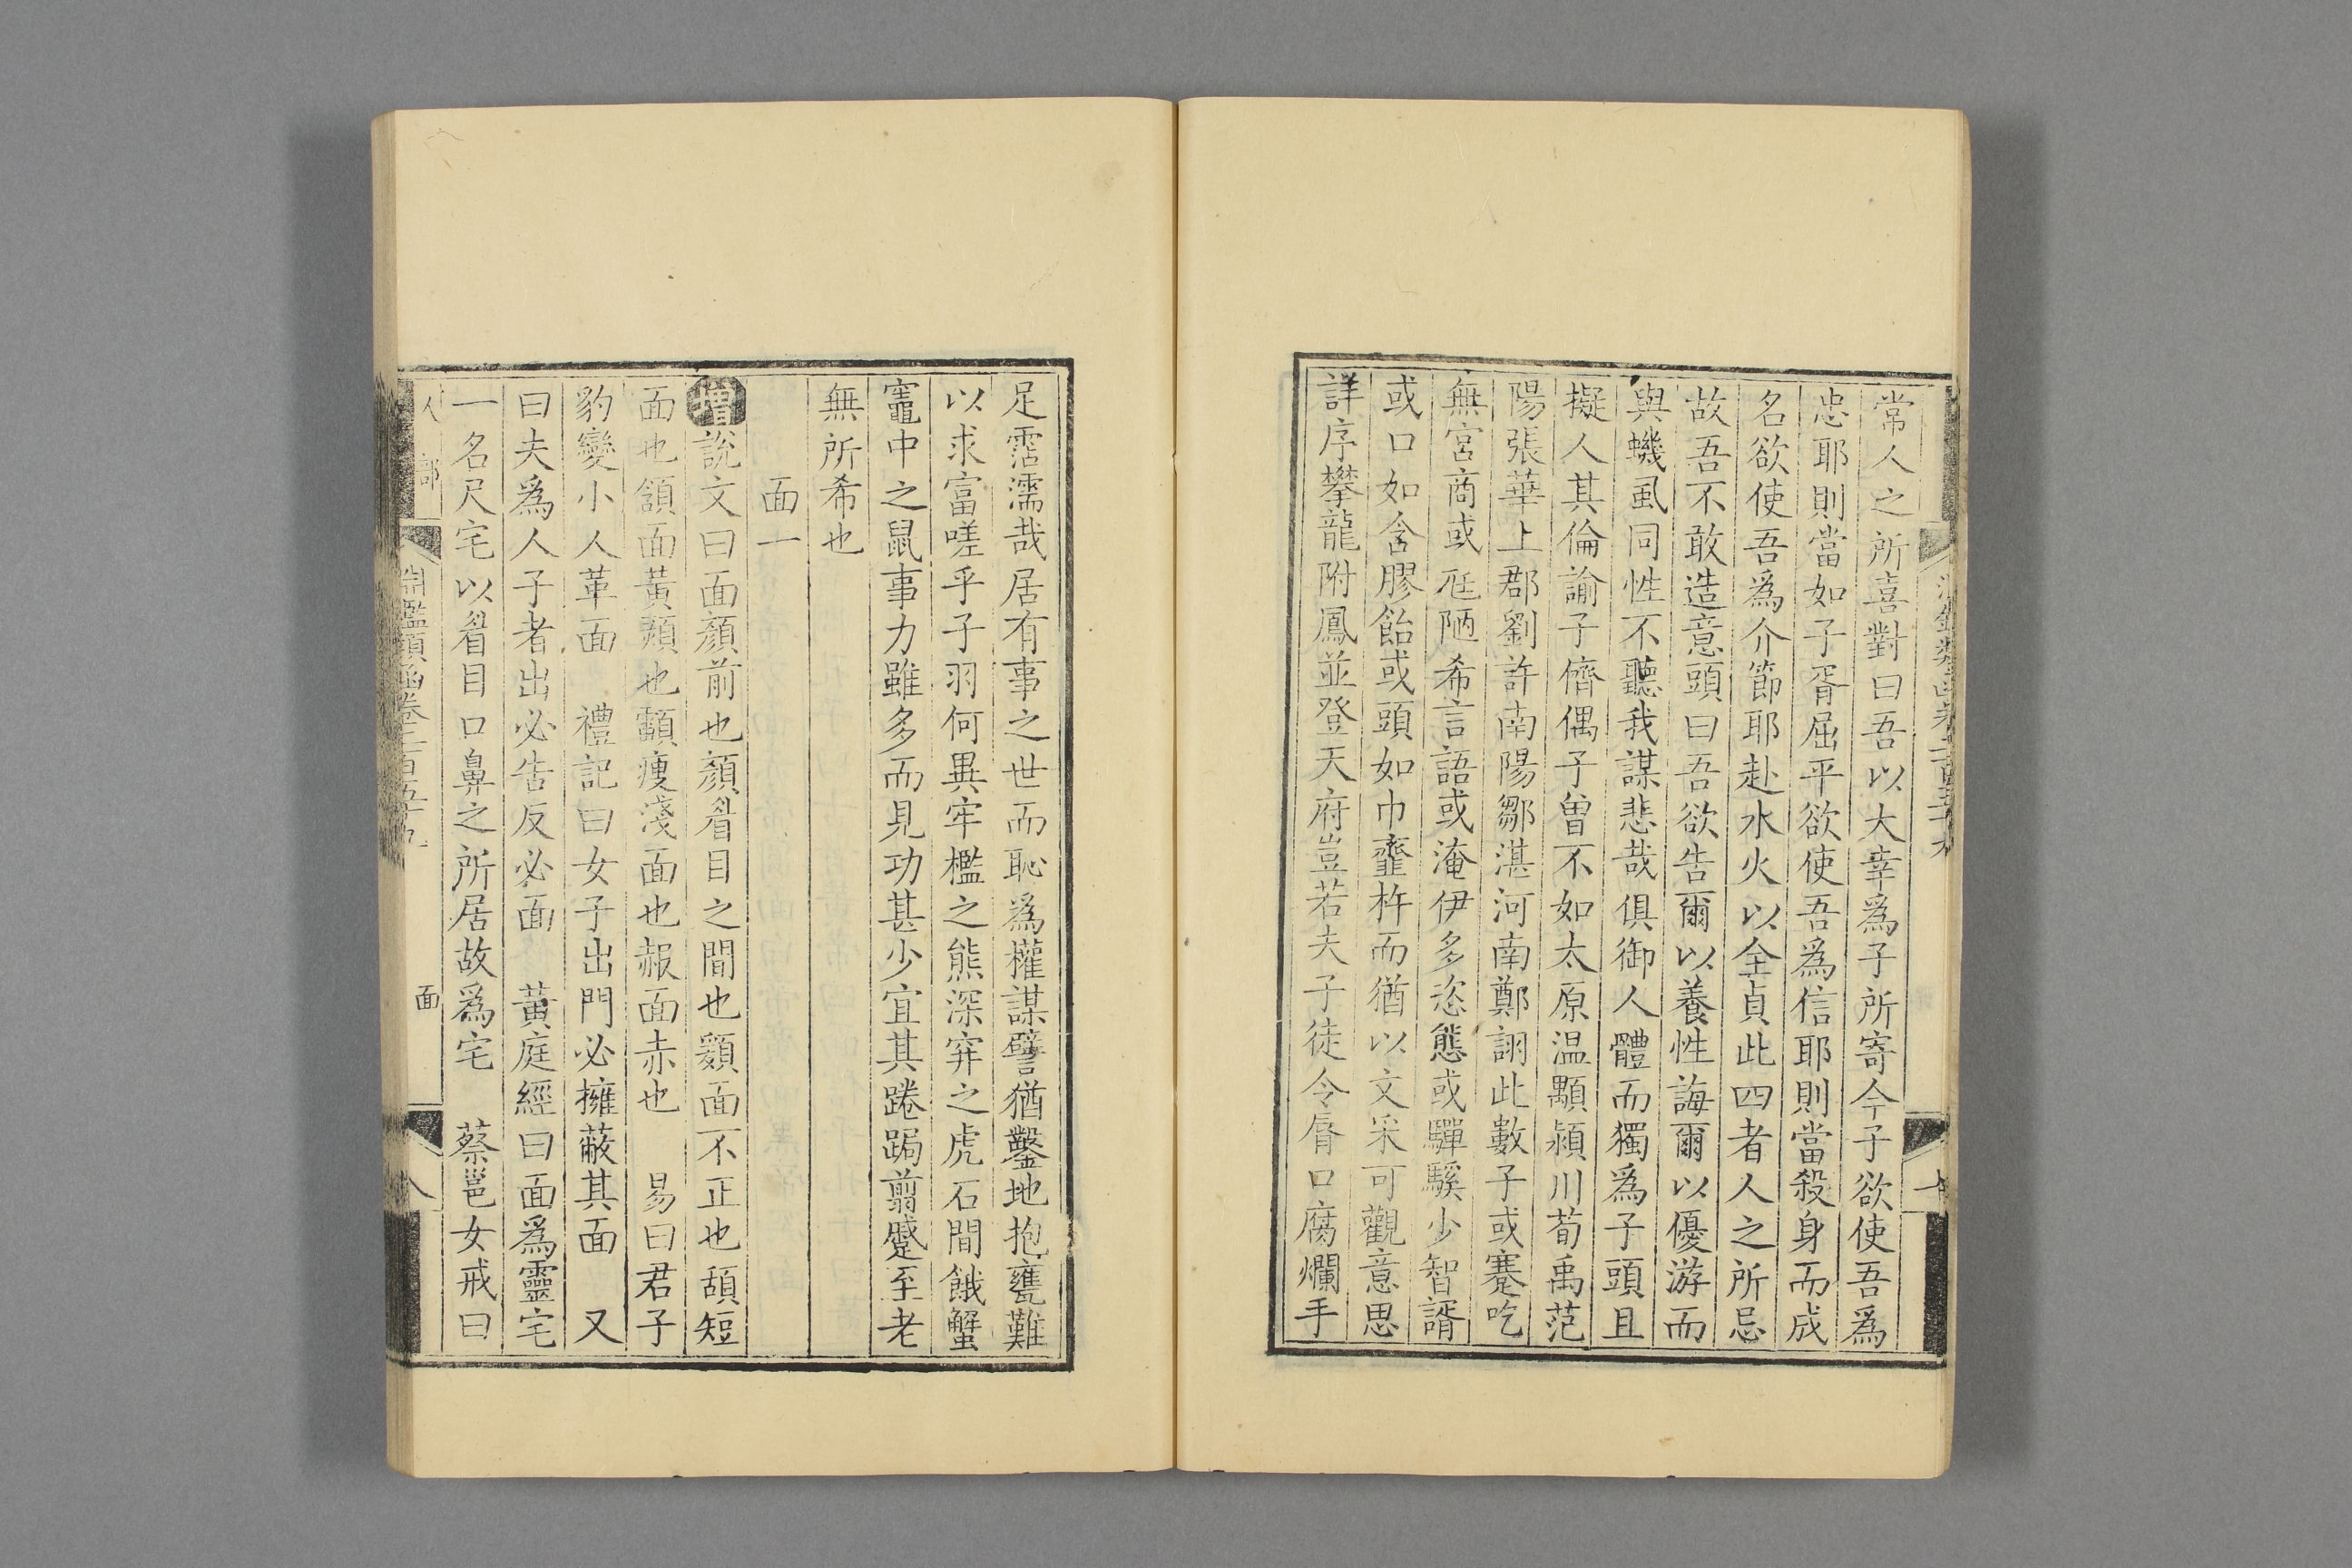 常人之所喜對曰吾以大幸爲子所寄今子欲使吾爲
忠耶則當如子胥屈平欲使吾爲信耶則當殺身而成
名欲使吾爲介節耶赴水火以全貞此四者人之所忌
故吾不敢造意頭曰吾欲告爾以養性誨爾以優游而
與蟣虱同性不聽我謀悲哉俱御人體而獨爲子頭且
擬人其倫諭子儕偶子曾不如太原温顒潁川荀禹范
陽張華上郡劉許南陽鄒湛河南鄭詡此數子或蹇吃
無宮商或尫陋希言語或淹伊多恣態或驒騱少智諝
或口如含膠飴或頭如巾虀杵而猶以文采可觀意思
詳序攀龍附鳳並登天府豈若夫子徒令脣口腐爛手
足霑濡哉居有事之世而恥爲權謀譬猶鑿地抱甕難
以求富嗟乎子羽何異牢檻之熊深穽之虎石間餓蟹
竈中之鼠事力雖多而見功甚少宜其踡跼翦蹙至老
無所希也
面一
增說文曰面顏前也顏眉目之間也顟面不正也頢短
面也頷面黃顙也顬瘦淺面也赧面赤也 易曰君子
豹變小人革面 禮記曰女子出門必擁蔽其面 又
曰夫爲人子者出必告反必面 黃庭經曰面爲靈宅
一名尺宅以眉目口鼻之所居故爲宅 蔡邕女戒曰
人部 淵鑑類函卷二百五十九 面 八